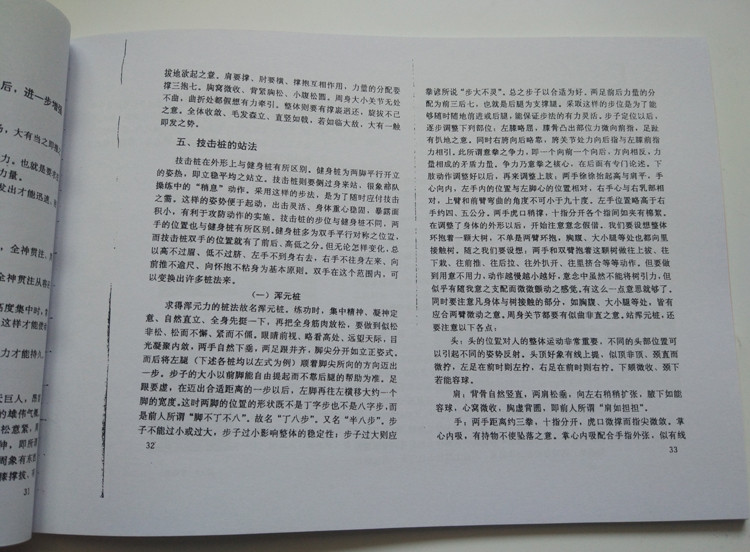 后，进一步增强
，大有当之即
力，也就是要
力量。
发出才能迅速，
，全神贯注
全神贯注从
高度集中时，
这样才能
力才能持久
天巨人，
的雄伟气
松意紧，
神，即所
周象有东
撑拔，
31
拔地欲起之意。肩要撑、肘要横、撑抱互相作用，力量的分配要
撑三抱七。胸窝微收、背紧胸松、小腹松圆。周身大小关节无处
不曲，曲折处都假想有力牵引。整体则要有撑裹遒还，旋拔不已
之意。全体收敛、毛发森立、直竖如戟，若如临大敌、大有一触
即发之势。
五、技击桩的站法
技击桩在外形上与健身桩有所区别。健身桩为两脚平行开立
的姿热，即立稳平均之站立。技击桩则要侧过身来站，很象部队
操练中的“稍息”动作。采用这样的步法，是为了随时应付技击
之需。这样的姿势便于起动、出击灵活、身体重心稳固，暴露面
积小，有利于攻防动作的实施。技击桩的步位与健身桩不同，两
手的位置也与健身桩有所区别。健身桩多为双手平行对称之位置，
而技击桩双手的位置就有了前后、高低之分。但无论怎样变化，总
以高不过眉、低不过脐、左手不到身右去，右手不往身左来、向
前推不逾尺、向怀抱不粘身为基本原则。双手在这个范围内，可
以变换出许多桩法来。
（一）浑元桩
求得浑元力的桩法故名浑元桩。练功时，集中精神，凝神定
意、自然直立、全身先挺一下，再把全身筋肉放松，要做到似松
非松、松而不懈、紧而不僵。眼睛前视、略看高处、远望天际，目
光凝聚内敛。两手自然下垂，两足跟并齐，脚尖分开如立正姿式。
而后将左腿（下述各桩均以左式为例）顺着脚尖所向的方向迈出
一步。步子的大小以前脚能自由提起而不靠后腿的帮助为准。足
跟要虚，在迈出合适距离的一步以后，左脚再往左横移大约一个
脚的宽度。这时两脚的位置的形状既不是丁字步也不是八字步，而
是前人所谓“脚不丁不八”。故名“丁八步”。又名“半八步”。步
子不能过小或过大，步子过小影响整体的稳定性；步子过大则应
32
拳谚所说“步大不灵”。总之步子以合适为好。两足前后力量的分
配为前三后七，也就是后腿为支撑腿。采取这样的步位是为了能
够随时随地前进或后腿，能保证步法的有力灵活。步子定位以后，
逐步调整下列部位，左膝略屈，膝骨凸出部位力微向前指，足趾
有扒地之意。同时右胯向后略靠，胯关节处力向后指与左膝前指
力相引。此所谓意拳之争力，即一个向前一个向后，方向相反，力
量相成的矛盾力量。争力乃意拳之核心，在后面有专门论述。下
肢动作调整好以后，再来调整上肢：两手徐徐抬起高与肩平，手
心向内，左手内的位置与左脚心的位置相对，右手心与右乳部相
对，上臂和前臂弯曲的角度不可小于九十度。左手位置略高于右
手约四、五公分。两手虎口稍撑，十指分开各个指间如夹有棉絮。
在调整了身体的外形以后，开始注意意念假借。我们要设想整体
环抱着一颗大树，不单是两臂环抱，胸腹、大小腿等处也都向里
接触树。随之我们要设想：两手和双臂抱着这颗树做往上拔、往
下栽、往前推、往后拉、往外扒开、往里挤合等等动作。但要做
到用意不用力，动作越慢越小越好，意念中虽然不能将树引力，但
似乎有随我意之支配而微微颤动之感觉。有这么一点意思就够了。
同时要注意凡身体与树接触的部分，如胸腹、大小腿等处，皆有
应合两臂微动之意。周身关节都要有似曲非直之意。站浑元桩，还
要注意以下各点：
头：头的位置对人的整体运动非常重要，不同的头部位置可
以引起不同的姿势反射。头顶好象有线上提，似顶非顶、颈直而
微拧，左足在前时则左拧，右足在前时则右拧。下颌微收、颈下
若能容球。
肩，背骨自然竖直，两肩松垂，向左右稍稍扩张，腋下如能
容球，心窝微收，胸虚背圆，即前人所谓“肩如担担”。
手，两手距离约三拳，十指分开，虎口微撑而指尖微敛。掌
心内吸，有持物不使坠落之意。掌心内吸配合手指外张，似有线
33